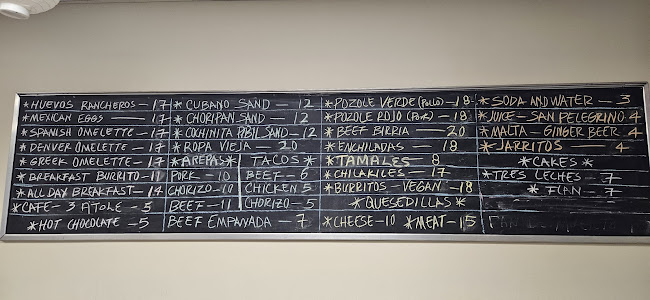 *HUEVOS RANCHEROS - 17
*MEXICAN EGGS - 17
*SPANISH OMELETTE - 17
*DENVER OMELETTE - 17
*GREEK OMELETTE - 17
*BREAKFAST BURRITO - 17
*ALL DAY BREAKFAST - 14
*CAFE - 3 ATOLE - 5
*HOT CHOCOLATE - 5
*CUBANO SAND - 12
*CHORIPAN SAND - 12
*COCHINITA PIBIL SAND - 12
*ROPA VIEJA - 20
*AREPAS*
PORK - 10
CHORIZO - 10
BEEF - 11
TACOS*
BEEF - 6
CHICKEN 5
CHORIZO - 5
BEEF EMPANADA - 7
*POZOLE VERDE (Pollo) - 18
*POZOLE ROJO (Pork) - 18
*BEEF BIRRIA - 20
*ENCHILADAS - 18
*TAMALES - 8
*CHILAKILES - 17
*BURRITOS - VEGAN - 18
*QUESEDILLAS*
*CHEESE - 10 *MEAT - 15
*SODA AND WATER - 3
*JUICE - SAN PELEGRINO 4
*MALTA - GINGER BEER 4
*JARRITOS - 4
*CAKES*
*TRES LECHES - 7
*FLAN - 7